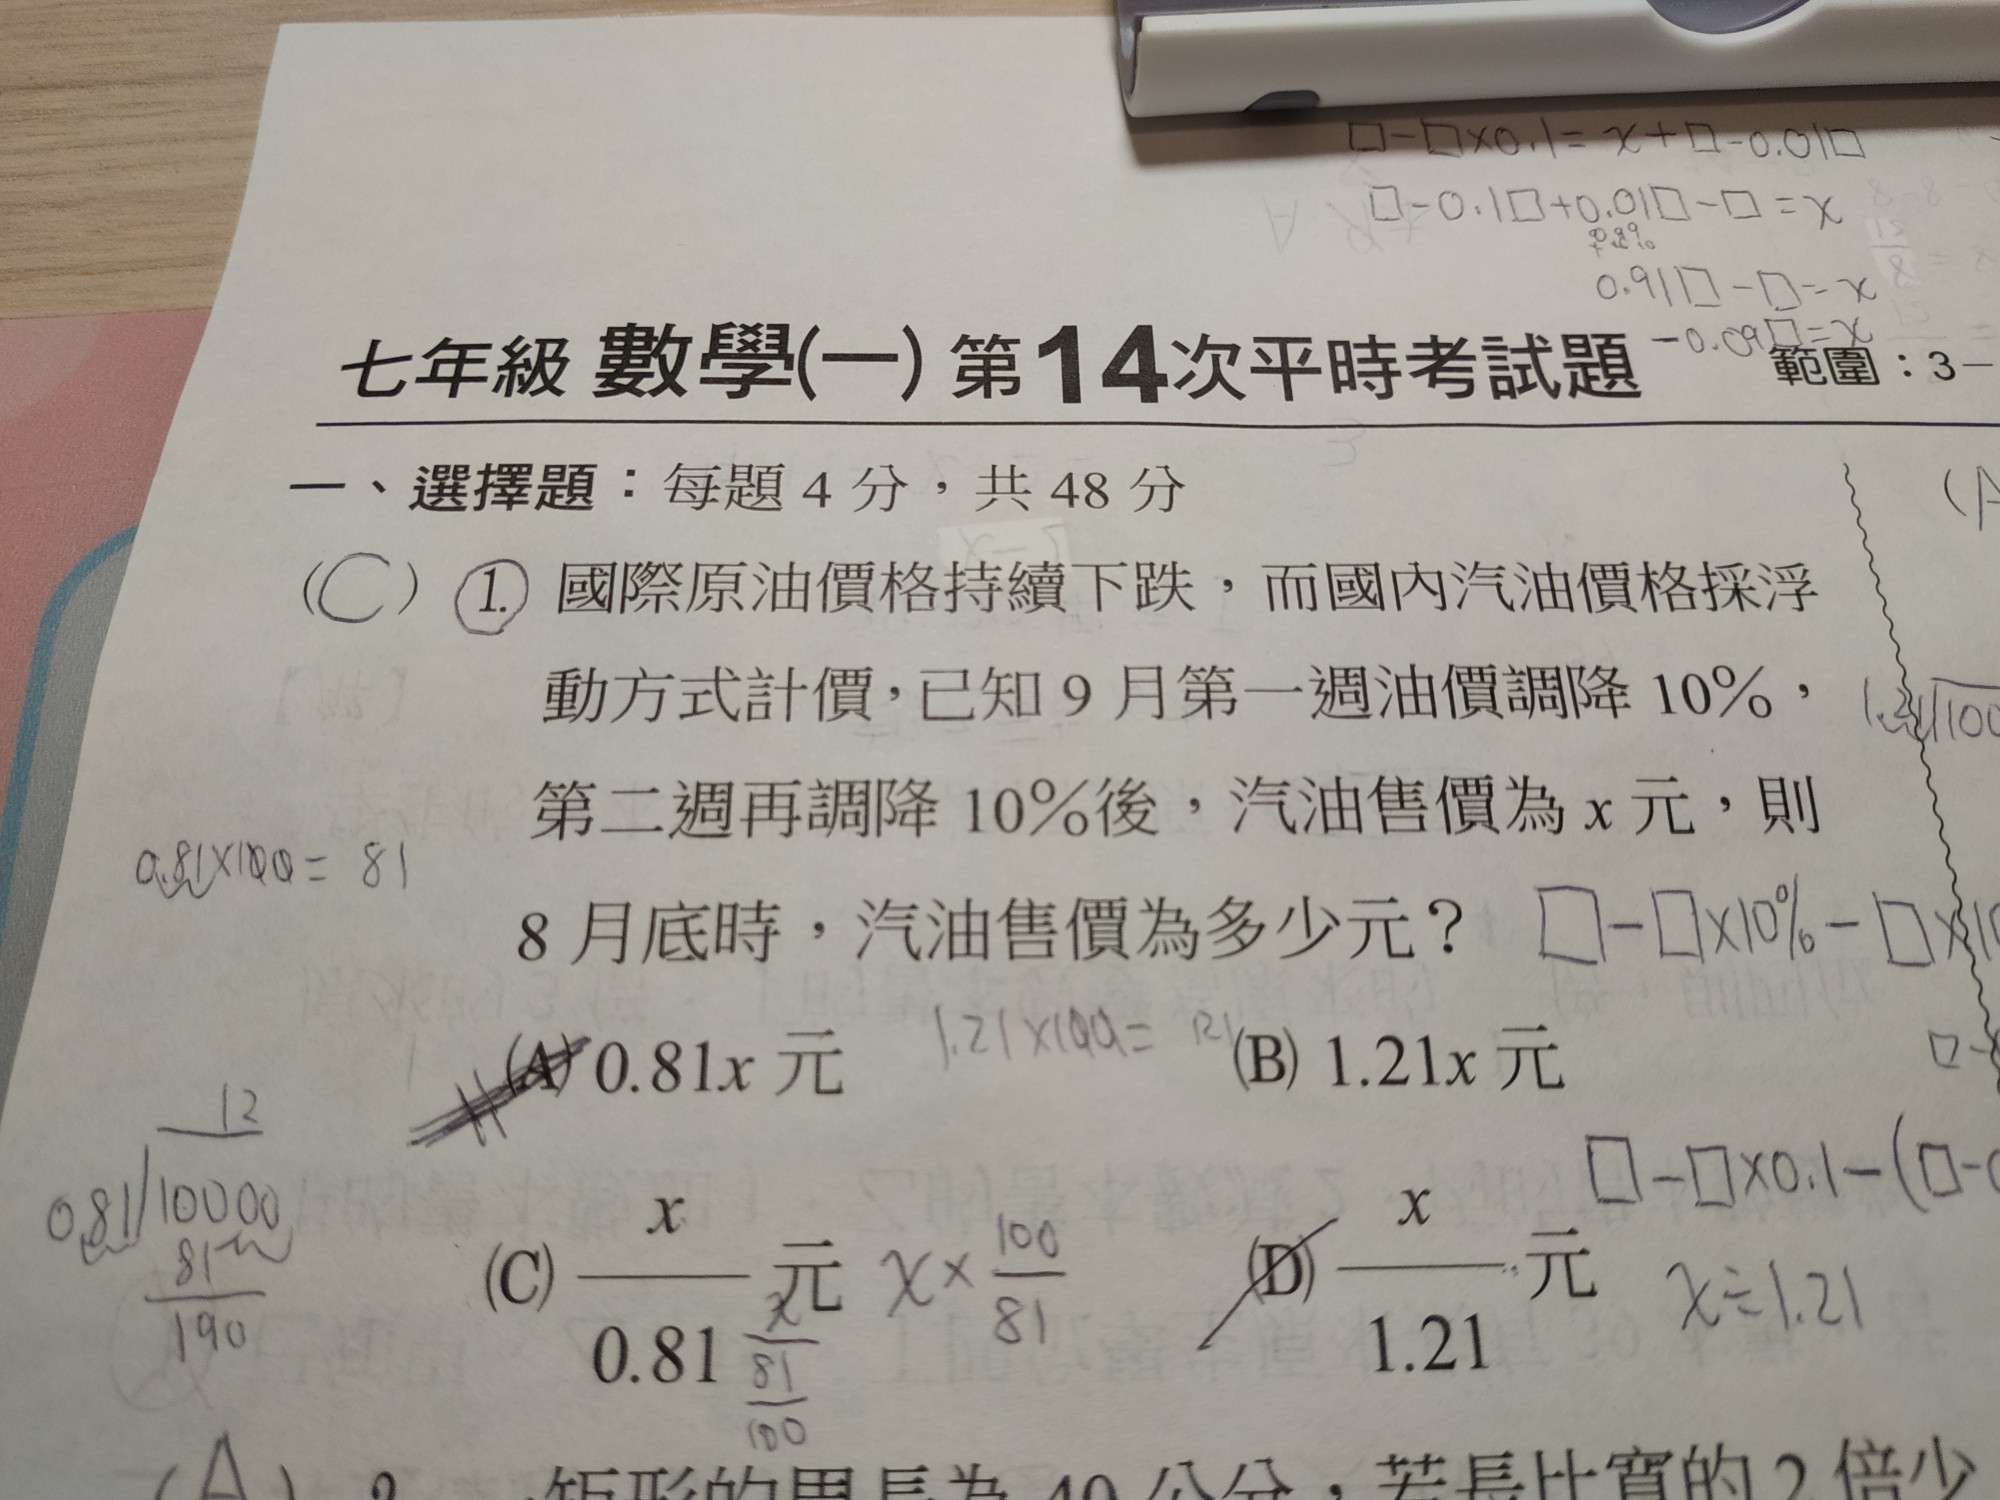 □-□×0.1=x+□-0.01□
□-0.1□+0.01□-□=x
0.91□-□=x
-0.09□=x
七年級 數學(一) 第14次平時考試題 範圍:3-
一、選擇題:每題 4 分,共 48 分
(A
(C) 1. 國際原油價格持續下跌,而國內汽油價格採浮
動方式計價,已知 9 月第一週油價調降 10%,
1.21 100
第二週再調降 10%後,汽油售價為 x 元,則
0.81×100= 81
8 月底時,汽油售價為多少元? □-□×10%-□×10
(A) 0.81x 元 1.21×100= 121 (B) 1.21x 元
12
0.81 10000
81
190
(C) x/0.81 元 x× 100/81 (D) x/1.21 元
□-□×0.1-(□-0
x/(81/100)
x÷1.21
(A) 2. 一矩形的周長為 40 公分,若長比寬的 2 倍少